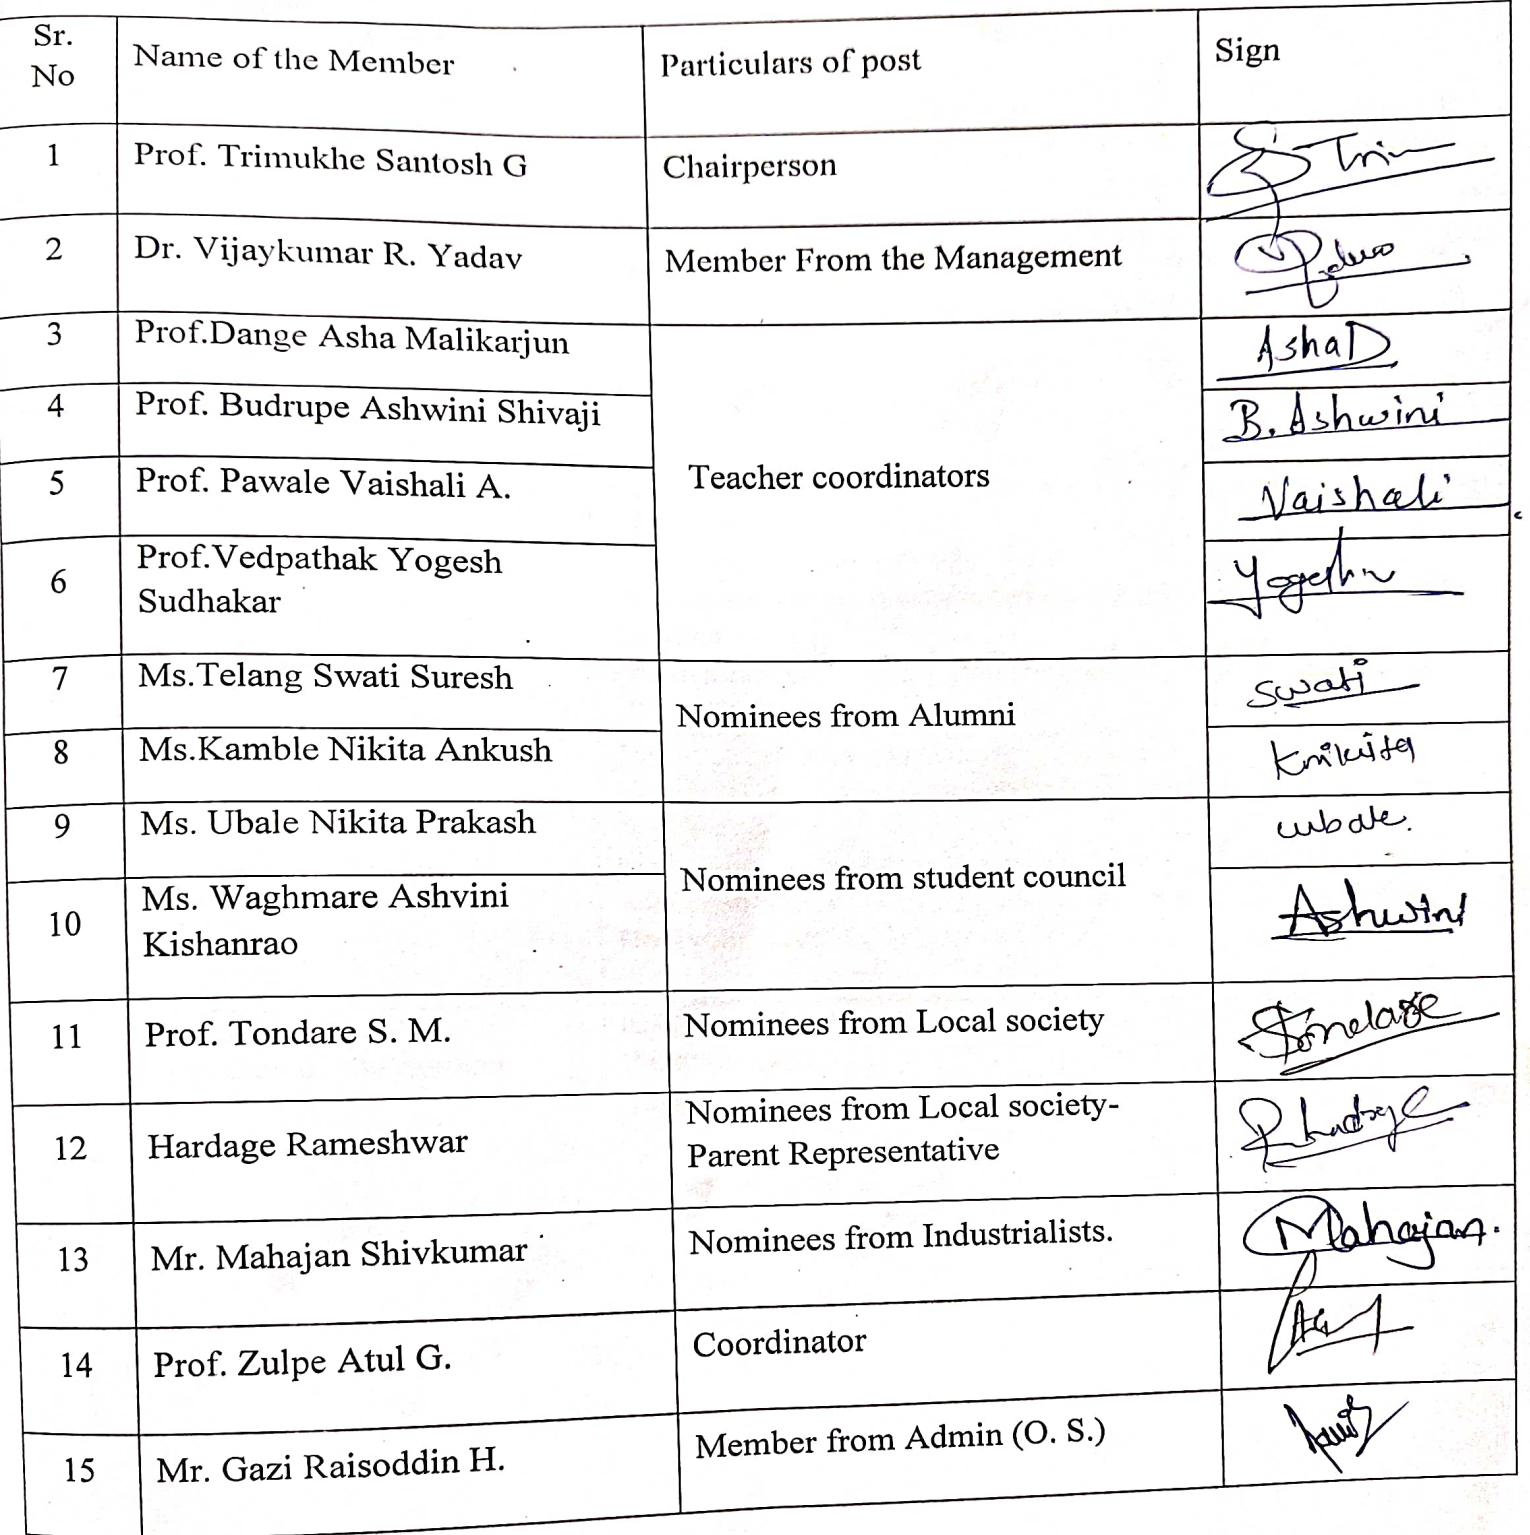 Sr.
No
Name of the Member
Particulars of post
Sign
1
Prof. Trimukhe Santosh G
Chairperson
2
Dr. Vijaykumar R. Yadav
Member From the Management
3
Prof.Dange Asha Malikarjun
Teacher coordinators
AshaD
4
Prof. Budrupe Ashwini Shivaji
B. Ashwini
5
Prof. Pawale Vaishali A.
Vaishali
6
Prof.Vedpathak Yogesh
Sudhakar
7
Ms.Telang Swati Suresh
Nominees from Alumni
Swati
8
Ms.Kamble Nikita Ankush
Knikita
9
Ms. Ubale Nikita Prakash
Nominees from student council
ubale.
10
Ms. Waghmare Ashvini
Kishanrao
Ashwini
11
Prof. Tondare S. M.
Nominees from Local society
12
Hardage Rameshwar
Nominees from Local society-
Parent Representative
13
Mr. Mahajan Shivkumar
Nominees from Industrialists.
Mahajan.
14
Prof. Zulpe Atul G.
Coordinator
15
Mr. Gazi Raisoddin H.
Member from Admin (O. S.)